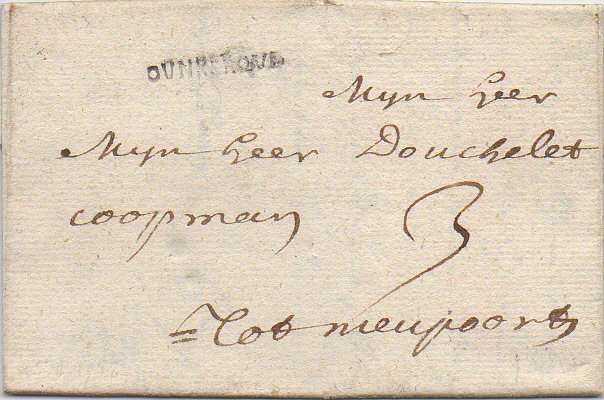 DUNKERQUE
Mijn heer
Mijn heer Douchelet
coopman 3
Tot nieupoort